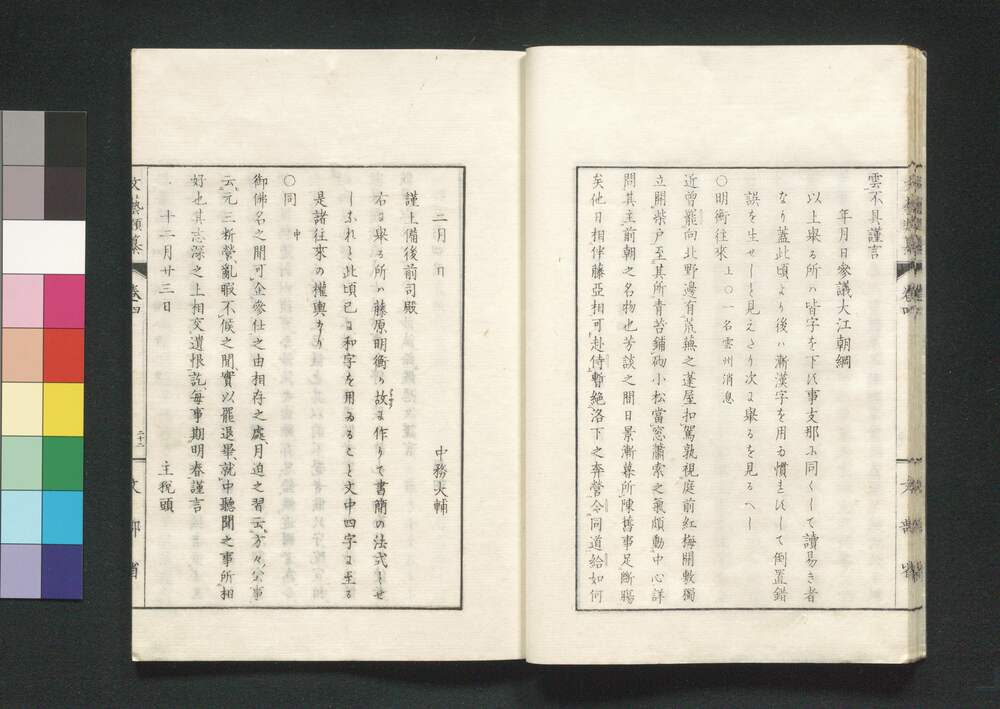 雲不具謹言
年月日參議大江朝綱
以上舉る所ハ皆字を下に事支那に同くして讀易き者
なり蓋此頃より後ハ漸漢字を用る慣として倒置錯
誤を生せしと見えたり次に舉るを見るへし
〇明衡往來 上ノ〇一名雲州消息
近曾罷向北野邊有荒蕪之蓬屋扣駕孰視庭前紅梅開敷獨
立開柴戸至其所青苔鋪砌小松當窓蕭索之氣頗動中心詳
問其主前朝之名物也芳談之間日景漸暮所陳舊事足斷腸
矣他日相伴藤亞相可赴侍暫絶洛下之奔營令同道給如何
二月 日 中務大輔
謹上備後前司殿
右に舉る所ハ藤原明衡の故に作りて書簡の法式とせ
しなれと此頃已に和字を用ゐること文中四字に至る
是諸往來の權輿なり
〇同 中
御佛名之間可企參仕之由相存之處月迫之習云方々公事
云元三斬營亂暇不候之間實以罷退畢就中聽聞之事所相
好也其志深之上相交遺恨訖每事期明春謹言
十二月廿三日 主税頭
文藝類纂 卷四
二十二 文部省